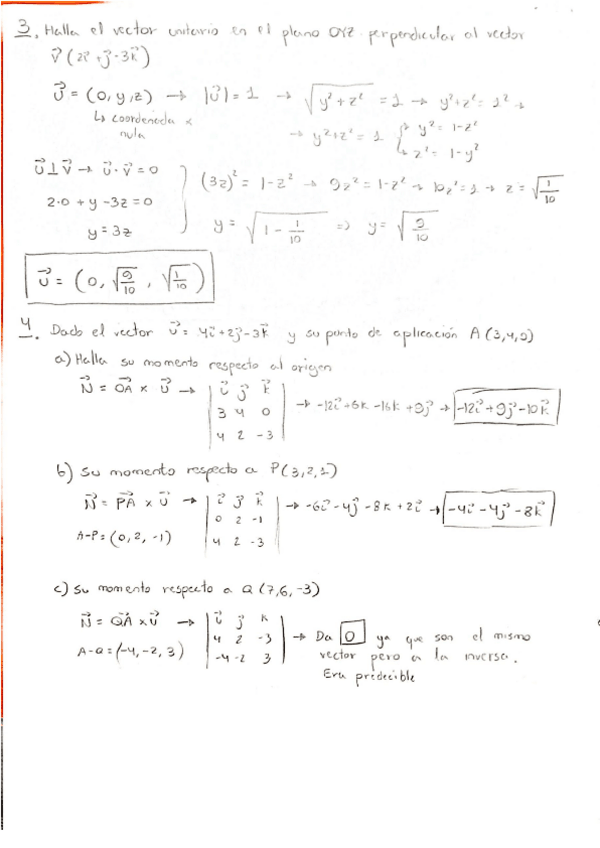 3. Halla el vector unitario en el plano OYZ perpendicular al vector
V⃗ (2i⃗ + j⃗ - 3k⃗)
U⃗ = (0, y, z) → |U⃗| = 1 → √(y² + z²) = 1 → y² + z² = 1² →
↳ coordenada x
nula
→ y² + z² = 1 { y² = 1 - z²
z² = 1 - y²
U⃗ ⊥ V⃗ → U⃗ · V⃗ = 0
2·0 + y - 3z = 0
y = 3z
(3z)² = 1 - z² → 9z² = 1 - z² → 10z² = 1 → z = √(1/10)
y = √(1 - 1/10) ⇒ y = √(9/10)
U⃗ = (0, √(9/10), √(1/10))
4. Dado el vector U⃗ = 4i⃗ + 2j⃗ - 3k⃗ y su punto de aplicación A (3,4,0)
a) Halla su momento respecto al origen
N⃗ = OA⃗ × U⃗ → | i⃗ j⃗ k⃗ | → -12i⃗ + 6k - 16k + 9j⃗ → -12i⃗ + 9j⃗ - 10k⃗
3 4 0
4 2 -3
b) Su momento respecto a P(3,2,1)
N⃗ = PA⃗ × U⃗ → | i⃗ j⃗ k⃗ | → -6i⃗ - 4j⃗ - 8k + 2i⃗ → -4i⃗ - 4j⃗ - 8k⃗
0 2 -1
A-P = (0, 2, -1)
4 2 -3
c) Su momento respecto a Q (7,6,-3)
N⃗ = QA⃗ × U⃗ → | i⃗ j⃗ k | → Da 0 ya que son el mismo
4 2 -3
A-Q = (-4, -2, 3)
-4 -2 3
vector pero a la inversa.
Era predecible